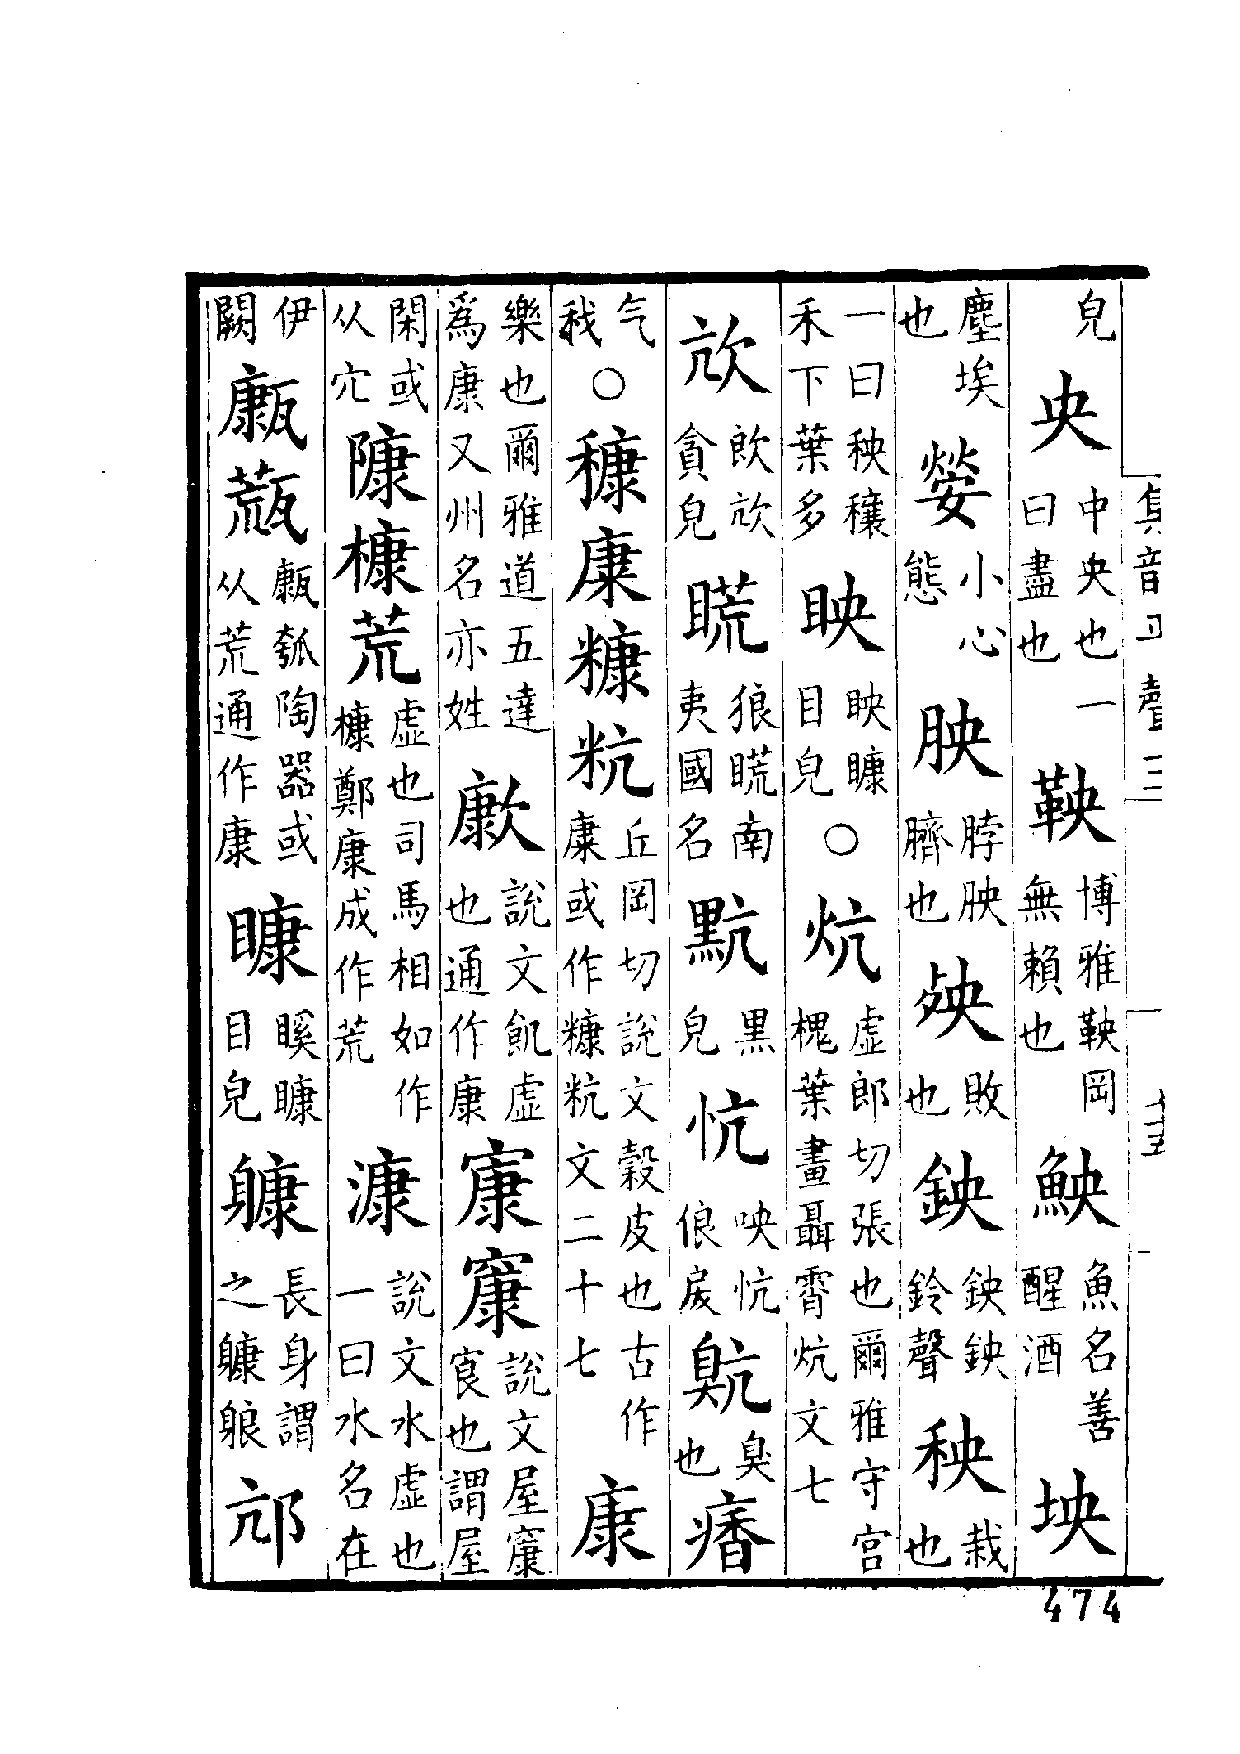 皃央中央也一曰盡也鞅博雅鞅罔無賴也鴦魚名善醒酒坱
塵埃也㜲小心態胦脖胦臍也殃敗也鉠鉠鉠鈴聲秧栽也
一曰秧穰禾下葉多眏眏䁳目皃○炕虛郎切張也爾雅守宮槐葉晝聶宵炕文七
㰠飲㰠貪皃䀮狼䀮南夷國名䵢黑皃忼咉忼俍戾䯎臭也㾮
气㦲○穅康糠粇丘岡切說文穀皮也古作康或作糠粇文二十七康
樂也爾雅道五達爲康又州名亦姓㱂說文飢虛也通作康㝩䆲說文屋䆲㝗也謂屋
閑或从穴𨻷槺荒虛也司馬相如作槺鄭康成作荒漮說文水虛也一曰水名在
伊闕㼹𤮊㼹瓠陶器或从荒通作康䁳䁈䁳目皃躿長身謂之躿躴邟
集韻平聲三
十五
474